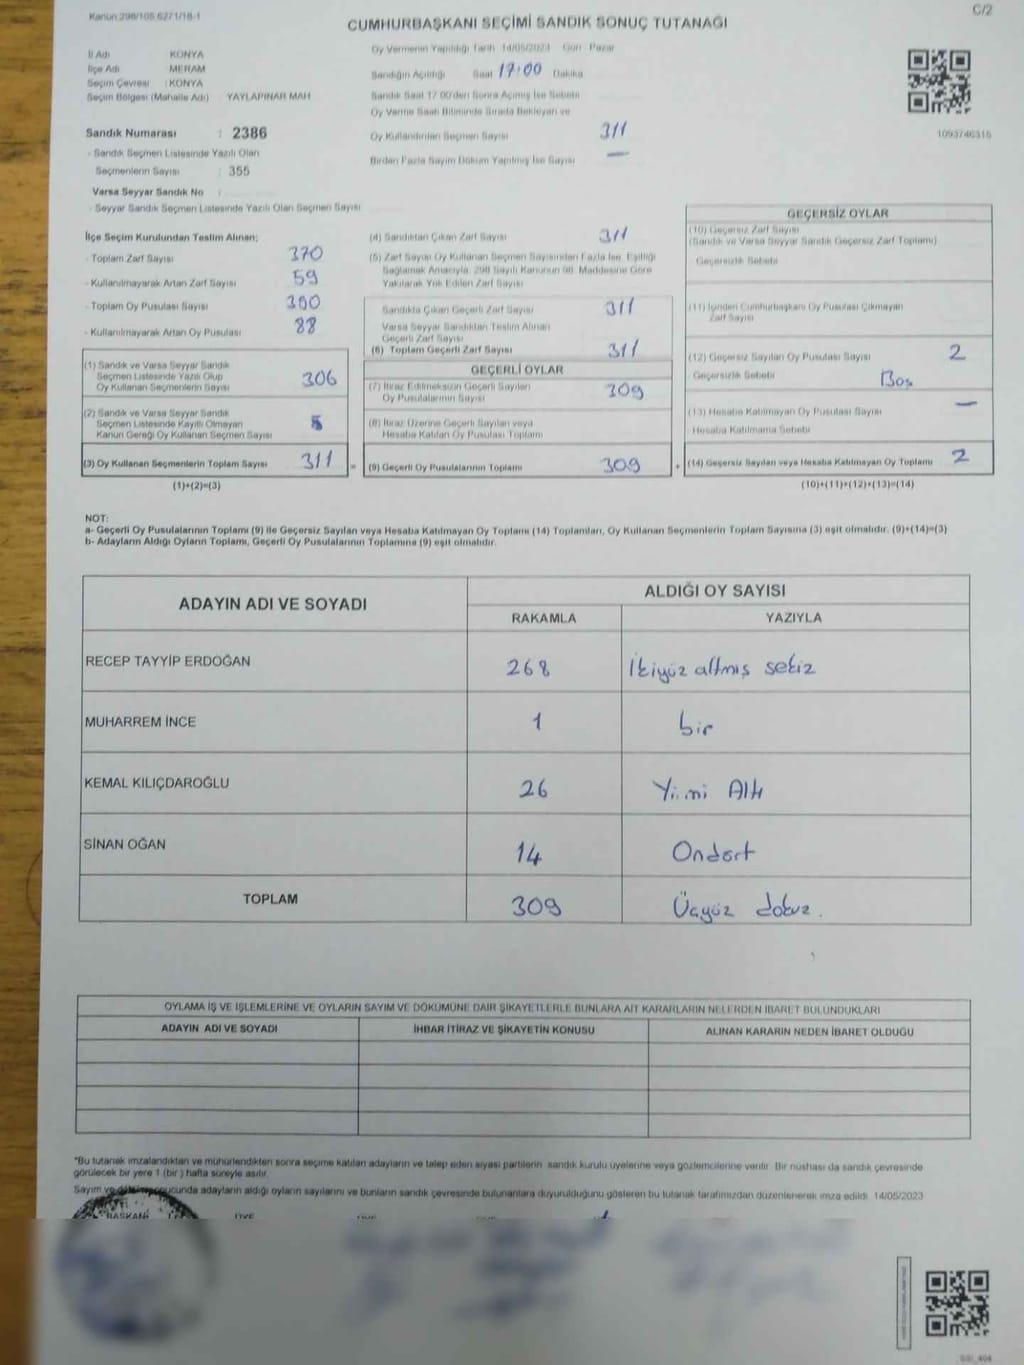 Kanun:298/105,6271/18-1
C/2
CUMHURBAŞKANI SEÇİMİ SANDIK SONUÇ TUTANAĞI
İl Adı KONYA
İlçe Adı MERAM
Seçim Çevresi : KONYA
Seçim Bölgesi (Mahalle Adı) YAYLAPINAR MAH
Sandık Numarası : 2386
- Sandık Seçmen Listesinde Yazılı Olan
Seçmenlerin Sayısı : 355
Varsa Seyyar Sandık No :
- Seyyar Sandık Seçmen Listesinde Yazılı Olan Seçmen Sayısı
Oy Vermenin Yapıldığı Tarih 14/05/2023 Gün Pazar
Sandığın Açıldığı Saat 17:00 Dakika
Sandık Saat 17.00'den Sonra Açılmış İse Sebebi
Oy Verme Saati Bitiminde Sırada Bekleyen ve
Oy Kullandırılan Seçmen Sayısı 311
Birden Fazla Sayım Döküm Yapılmış İse Sayısı —
1093746315
İlçe Seçim Kurulundan Teslim Alınan;
- Toplam Zarf Sayısı 370
- Kullanılmayarak Artan Zarf Sayısı 59
- Toplam Oy Pusulası Sayısı
- Kullanılmayarak Artan Oy Pusulası 88
(1) Sandık ve Varsa Seyyar Sandık
Seçmen Listesinde Yazılı Olup
Oy Kullanan Seçmenlerin Sayısı 306
(2) Sandık ve Varsa Seyyar Sandık
Seçmen Listesinde Kayıtlı Olmayan
Kanun Gereği Oy Kullanan Seçmen Sayısı 5
(3) Oy Kullanan Seçmenlerin Toplam Sayısı 311 =
(1)+(2)=(3)
(4) Sandıktan Çıkan Zarf Sayısı 311
(5) Zarf Sayısı Oy Kullanan Seçmen Sayısından Fazla İse, Eşitliği
Sağlamak Amacıyla, 298 Sayılı Kanunun 98. Maddesine Göre
Yakılarak Yok Edilen Zarf Sayısı
Sandıkta Çıkan Geçerli Zarf Sayısı 311
Varsa Seyyar Sandıktan Teslim Alınan
Geçerli Zarf Sayısı
(6) Toplam Geçerli Zarf Sayısı 311
GEÇERLİ OYLAR
(7) İtiraz Edilmeksizin Geçerli Sayılan
Oy Pusulalarının Sayısı 309
(8) İtiraz Üzerine Geçerli Sayılan veya
Hesaba Katılan Oy Pusulası Toplamı
(9) Geçerli Oy Pusulalarının Toplamı 309 +
GEÇERSİZ OYLAR
(10) Geçersiz Zarf Sayısı
(Sandık ve Varsa Seyyar Sandık Geçersiz Zarf Toplamı)
Geçersizlik Sebebi
(11) İçinden Cumhurbaşkanı Oy Pusulası Çıkmayan
Zarf Sayısı
(12) Geçersiz Sayılan Oy Pusulası Sayısı 2
Geçersizlik Sebebi Boş
(13) Hesaba Katılmayan Oy Pusulası Sayısı —
Hesaba Katılmama Sebebi
(14) Geçersiz Sayılan veya Hesaba Katılmayan Oy Toplamı 2
(10)+(11)+(12)+(13)=(14)
NOT:
a- Geçerli Oy Pusulalarının Toplamı (9) ile Geçersiz Sayılan veya Hesaba Katılmayan Oy Toplamı (14) Toplamları, Oy Kullanan Seçmenlerin Toplam Sayısına (3) eşit olmalıdır. (9)+(14)=(3)
b- Adayların Aldığı Oyların Toplamı, Geçerli Oy Pusulalarının Toplamına (9) eşit olmalıdır.
ADAYIN ADI VE SOYADI ALDIĞI OY SAYISI
RAKAMLA YAZIYLA
RECEP TAYYİP ERDOĞAN 268 İkiyüz altmış sekiz
MUHARREM İNCE 1 bir
KEMAL KILIÇDAROĞLU 26 Yirmi Altı
SİNAN OĞAN 14 Ondört
TOPLAM 309 Üçyüz dokuz.
OYLAMA İŞ VE İŞLEMLERİNE VE OYLARIN SAYIM VE DÖKÜMÜNE DAİR ŞİKAYETLERLE BUNLARA AİT KARARLARIN NELERDEN İBARET BULUNDUKLARI
ADAYIN ADI VE SOYADI İHBAR İTİRAZ VE ŞİKAYETİN KONUSU ALINAN KARARIN NEDEN İBARET OLDUĞU
*Bu tutanak imzalandıktan ve mühürlendikten sonra seçime katılan adayların ve talep eden siyasi partilerin sandık kurulu üyelerine veya gözlemcilerine verilir. Bir nüshası da sandık çevresinde
görülecek bir yere 1 (bir ) hafta süreyle asılır.
Sayım ve döküm sonucunda adayların aldığı oyların sayılarını ve bunların sandık çevresinde bulunanlara duyurulduğunu gösteren bu tutanak tarafımızdan düzenlenerek imza edildi. 14/05/2023
BAŞKAN